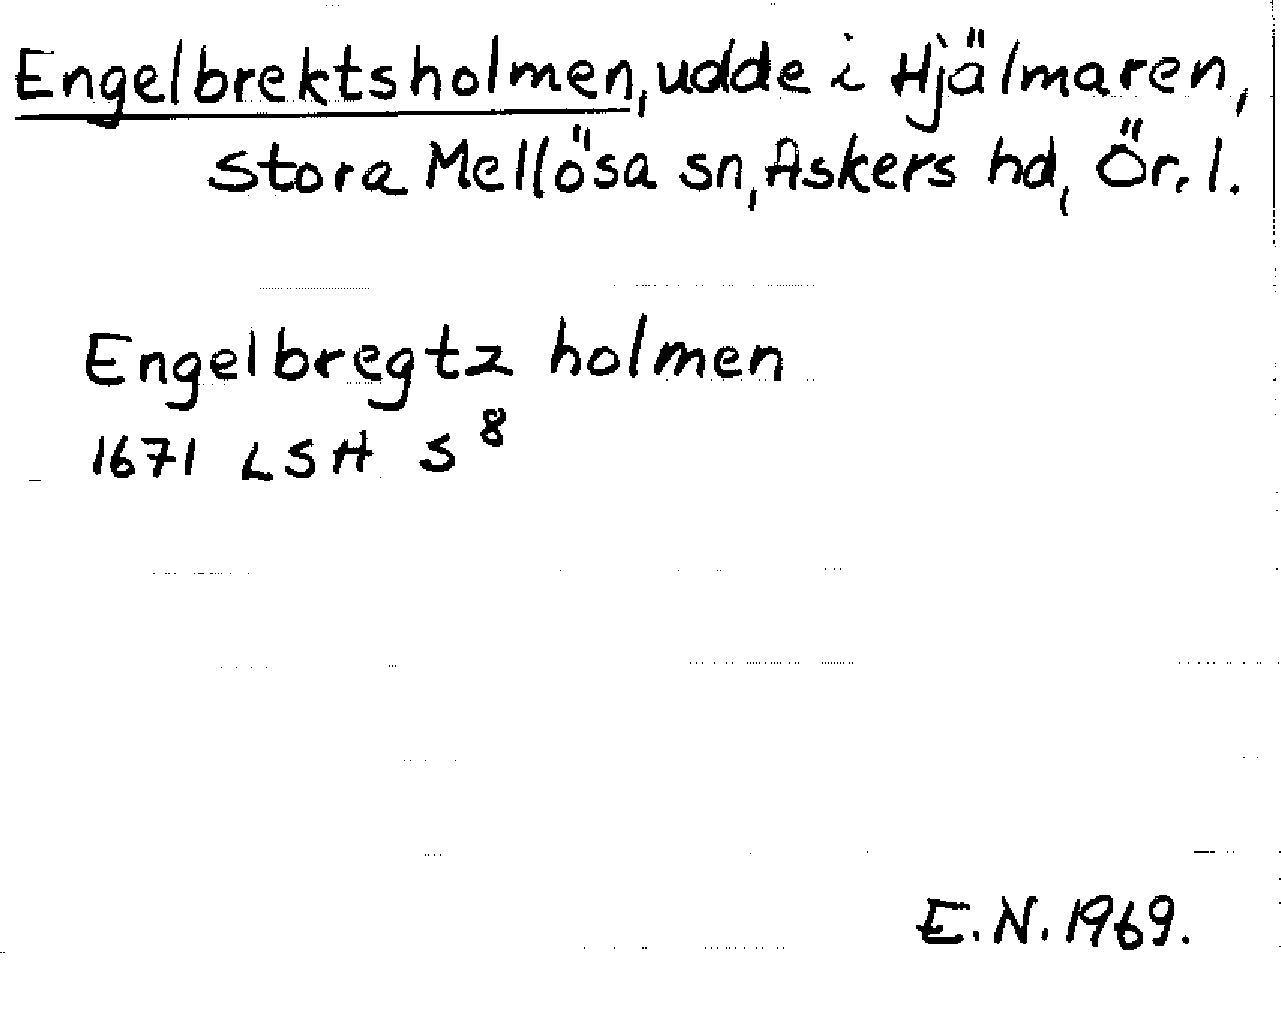 Engelbrektsholmen, udde i Hjälmaren,
Stora Mellösa sn, Askers hd, Ör. l.
Engelbregtz holmen
1671 LSH S 8
E. N. 1969.